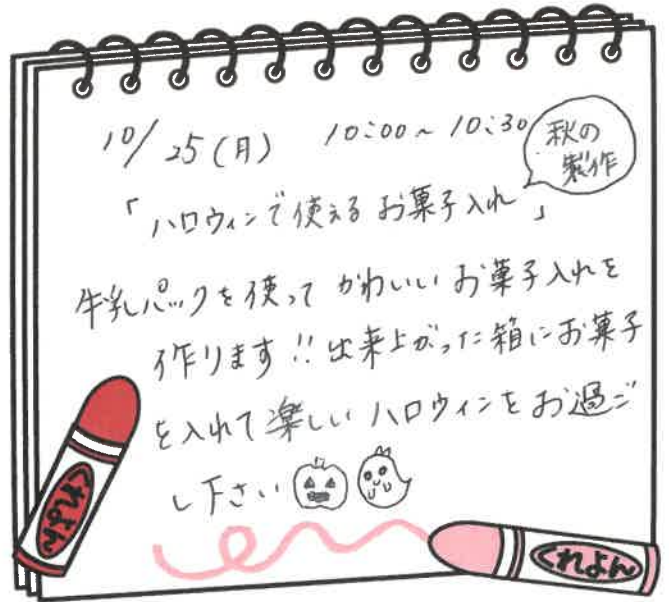 10/25(月) 10:00~10:30
秋の
製作
「ハロウィンで使えるお菓子入れ」
牛乳パックを使ってかわいいお菓子入れを
作ります!!出来上がった箱にお菓子
を入れて楽しいハロウィンをお過ご
し下さい
くれよん
くれよん